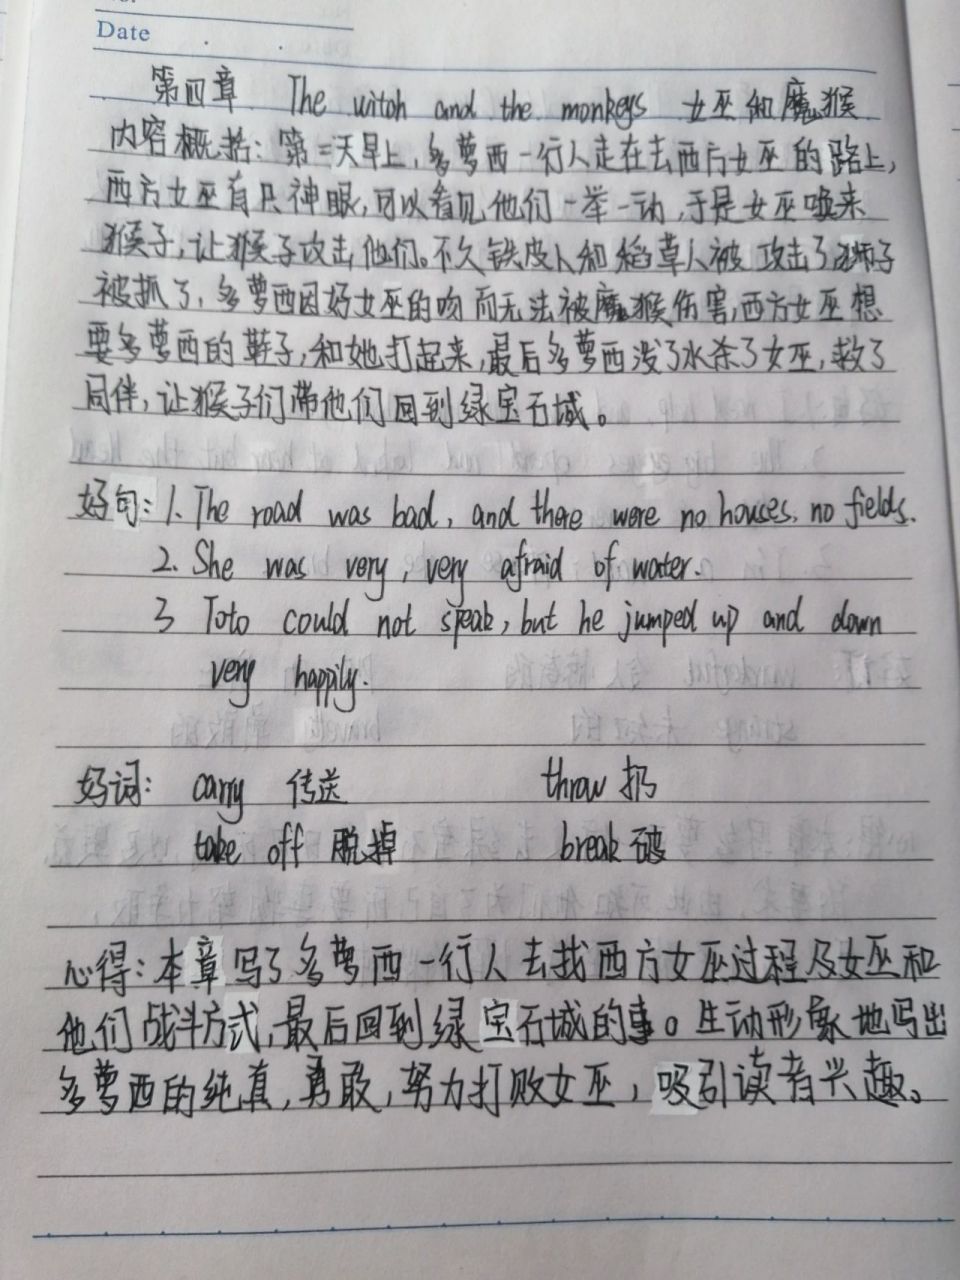 Date
第四章 The witch and the monkeys 女巫和魔猴
内容概括：第二天早上，多萝西一行人走在去西方女巫的路上，
西方女巫有只神眼，可以看见他们一举一动，于是女巫唤来
猴子，让猴子攻击他们。不久铁皮人和稻草人被攻击了狮子
被抓了，多萝西因好女巫的吻而无法被魔猴伤害，西方女巫想
要多萝西的鞋子，和她打起来，最后多萝西泼了水杀了女巫，救了
同伴，让猴子们带他们回到绿宝石城。
好句：1. The road was bad, and there were no houses, no fields.
2. She was very, very afraid of water.
3 Toto could not speak, but he jumped up and down
very happily.
好词： carry 传送 throw 扔
take off 脱掉 break 破
心得：本章写了多萝西一行人去找西方女巫过程及女巫和
他们战斗方式，最后回到绿宝石城的事。生动形象地写出
多萝西的纯真，勇敢，努力打败女巫，吸引读者兴趣。